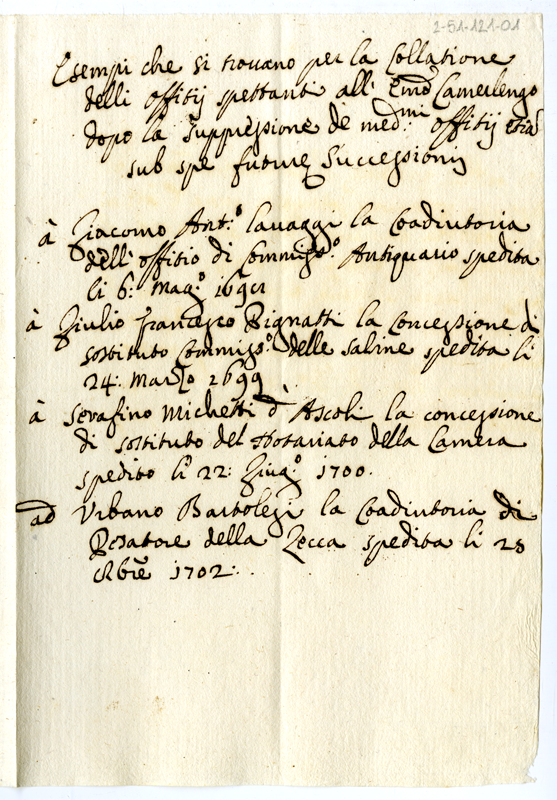 2-51-121-01
Esempi che si trovano per la Collatione
delli offitij spettanti all' Emo Camerlengo
dopo la Suppressione de medmi offitij etia
sub spe future Successionis
à Giacomo Ant.o Lavaggi la Coadiutoria
dell' offitio di Commiss.o Antiquario spedita
li 6: Mag.o
à Giulio Francesco Pignatti la Concessione di
sostituto Commiss.o delle Saline spedita li
24: Marzo 1699
à Serafino Michetti d'Ascoli la concessione
di sostituto del Notariato della Camera
spedito li 22: Giug.o 1700.
ad Urbano Bartolesi la Coadiutoria di
Pesatore della Zecca spedita li 28
1702: